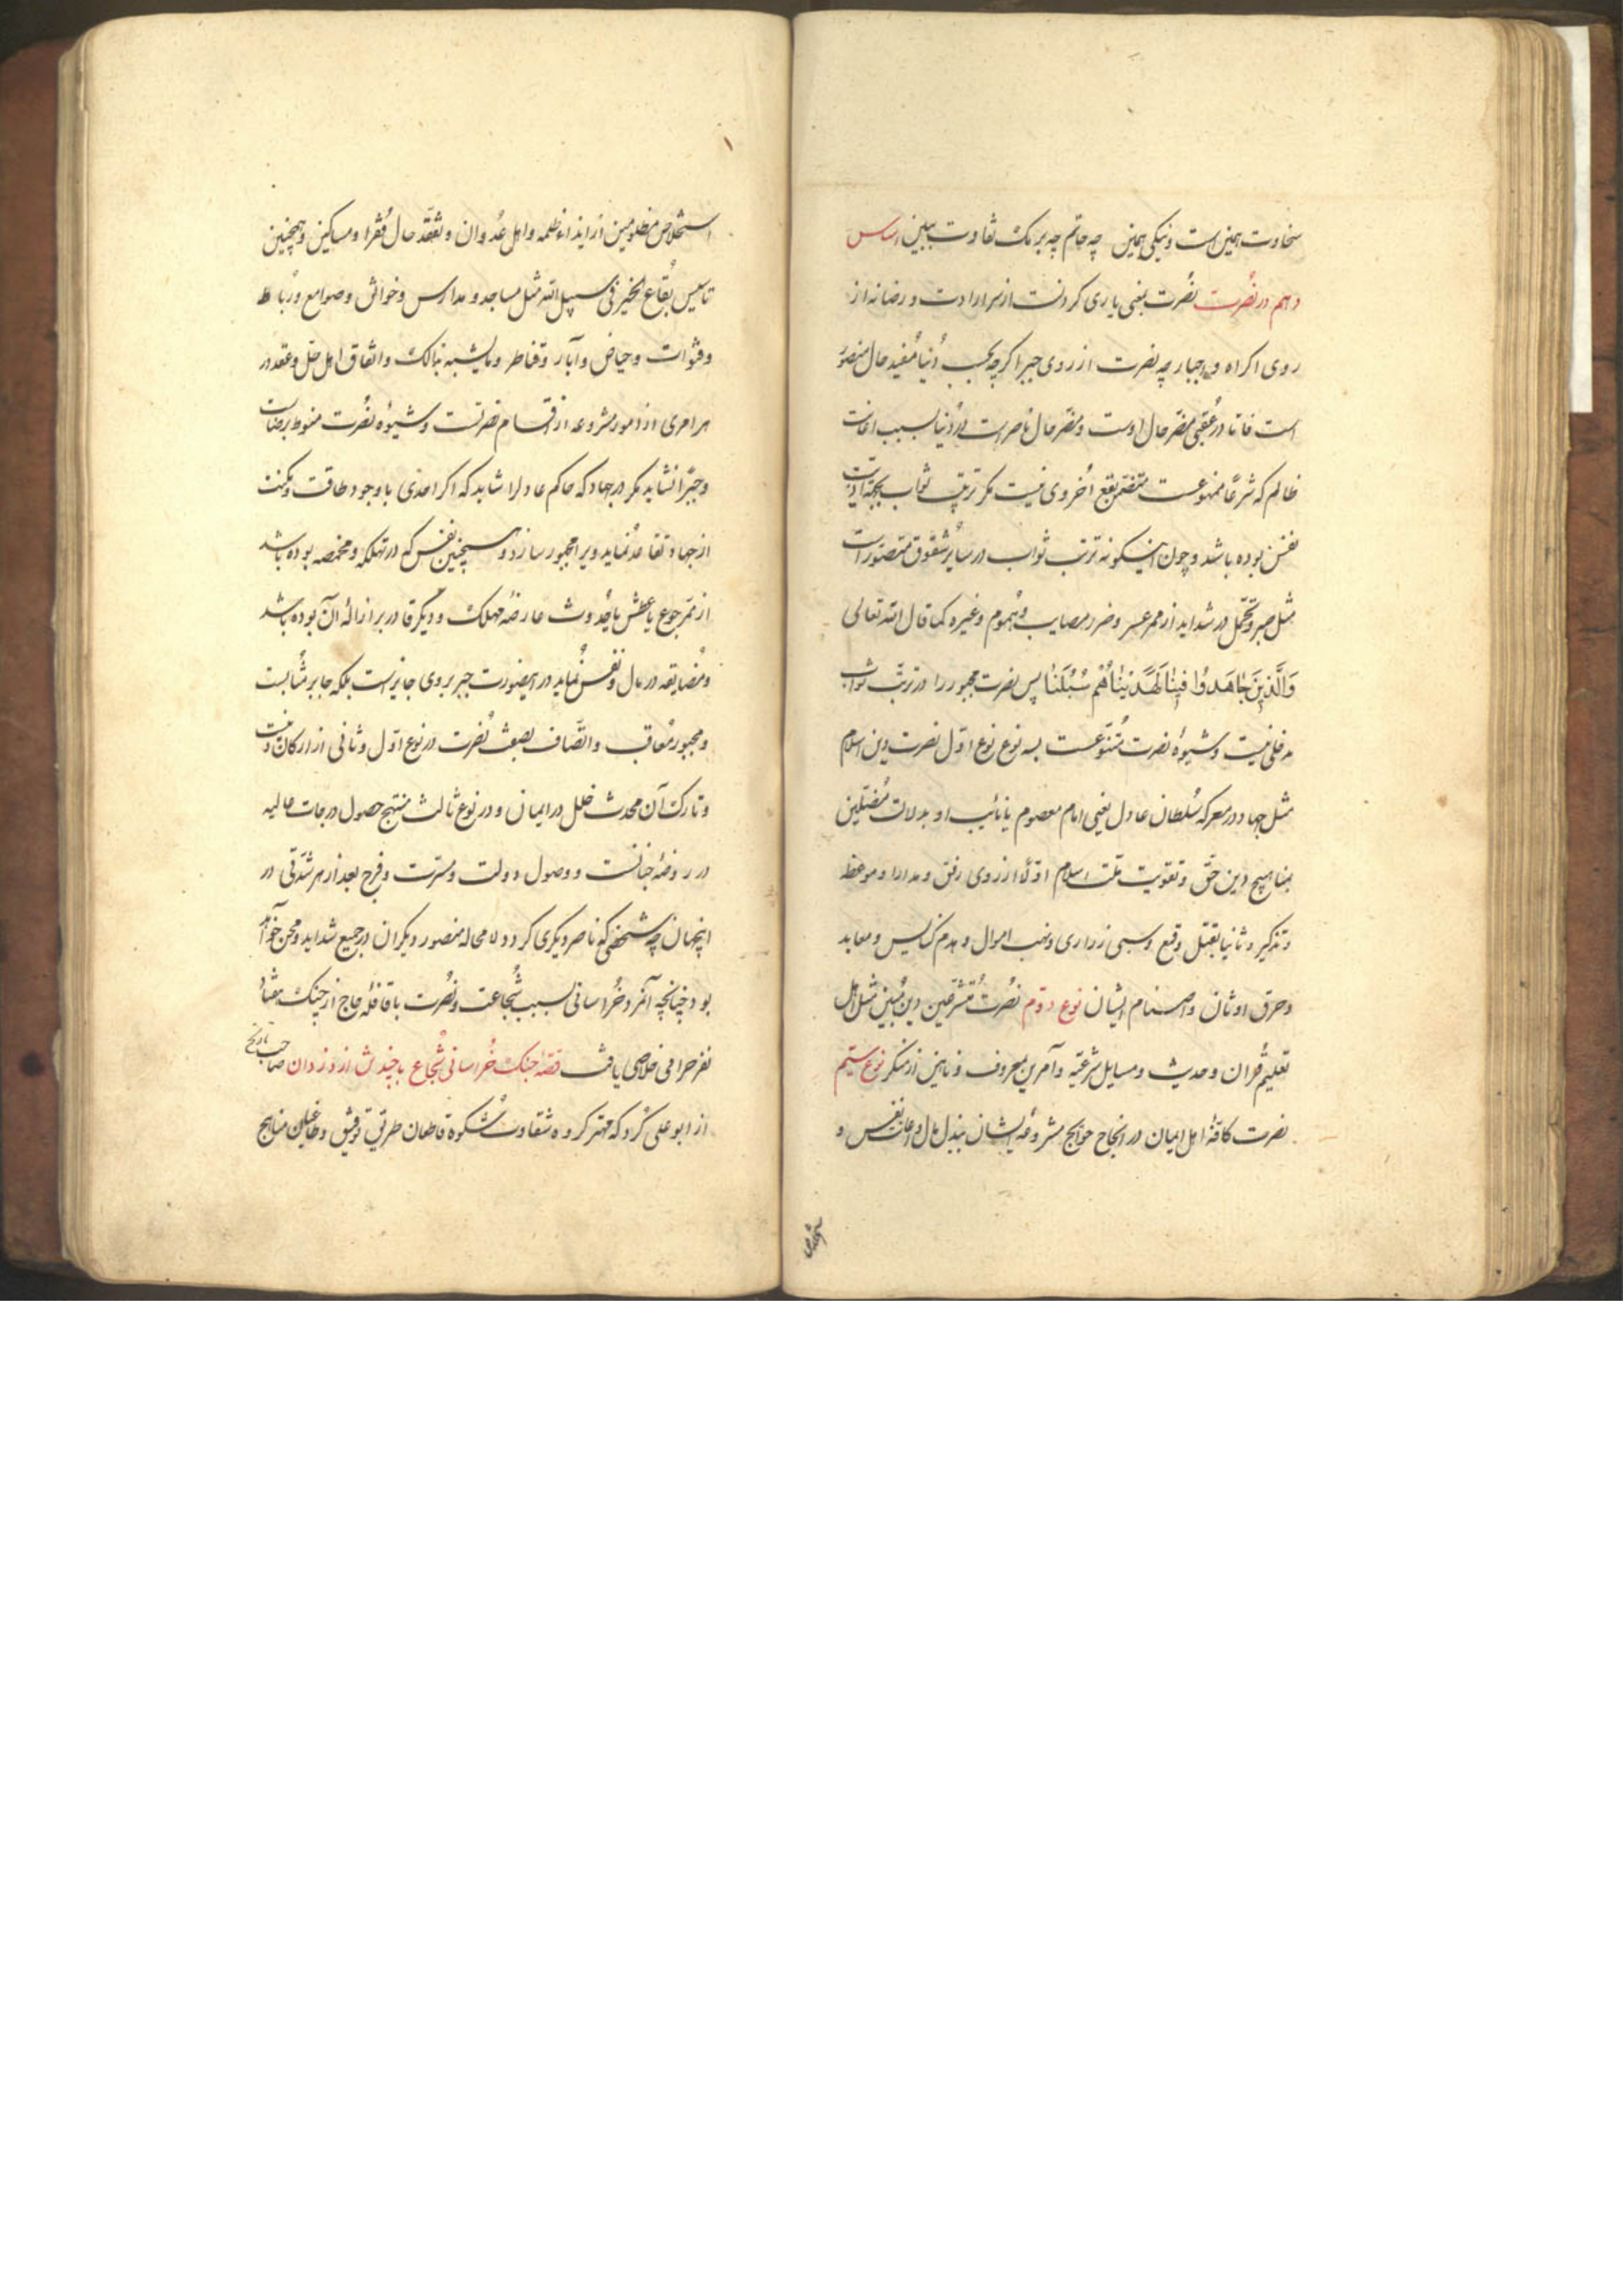 سخاوت همین است و نیکی همین چه حاتم چه برمک تفاوت ببین اساس
دهم در نصرت نصرت بمعنی یاری کردنست از سر ارادت و رضا نه از
روی اکراه و اجبار چه نصرت از روی جبر اگرچه بحسب دنیا مفید حال منصور
است فاما در عقبی مضر حال اوست و مضر حال ناصر است در دنیا بسبب اعانت
ظالم که شرعا ممنوعست متضمن نفع اخروی نیست مگر ترتیب ثواب بجهة اذیت
نفس بوده باشد و چون اینگونه ترتب ثواب در سایر شقوق متصور است
مثل صبر و تحمل در شداید از ممر عسر و ضر و مصایب و هموم و غیره کما قال الله تعالی
وَالَّذِینَ جَاهَدُوا فِینَا لَنَهْدِیَنَّهُمْ سُبُلَنَا پس نصرت مجبور را در ترتب ثواب
مدخلی نیست و شیوهٔ نصرت متنوعست بسه نوع نوع اول نصرت دین اسلام
مثل جهاد در معرکه سلطان عادل یعنی امام معصوم یا نائب او بدلالت مضلین
بمناهج دین حق و تقویت ملت اسلام اولا از روی رفق و مدارا و موعظه
و تذکیر و ثانیا بقتل و قمع و سبی ذراری و نهب اموال و هدم کنایس و معابد
و حرق اوثان و اصنام ایشان نوع دوم نصرت متشرعین دین مبین مثل اهل
تعلیم قران و حدیث و مسایل شرعیه و آمرین بمعروف و ناهین از منکر نوع سیم
نصرت کافهٔ اهل ایمان در انجاح حوایج مشروعهٔ ایشان ببذل مال و اعانت نفس و
استخلاص
استخلاص مظلومین از ایذاء ظلمه و اهل عدوان و تفقد حال فقرا و مساکین و همچنین
تاسیس بقاع الخیر فی سبیل الله مثل مساجد و مدارس و خوانق و صوامع و رباط
و قنوات و حیاض و آبار و قناطر و مایشبه بذالک و اتفاق اهل حل و عقد در
هر امری از امور مشروعه از اقسام نصرتست و شیوهٔ نصرت منوط برضاست
و جبرا نشاید مگر در جهاد که حاکم عادلرا شاید که اگر احدی با وجود طاقت و مکنت
از جهاد تقاعد نماید ویرا مجبور سازد و همچنین نفسی که در تهلکه و مخمصه بوده باشد
از ممر جوع یا عطش یا حدوث عارضهٔ مهلک و دیگر قادر بر ازالهٔ آن بوده باشد
و مضایقه در مال و نفس نماید در اینصورت جبر بر وی جایز است بلکه جابر مثابست
و مجبور معاقب و اتصاف بصفت نصرت در نوع اول و ثانی از ارکان دینست
و تارک آن محدث خلل در ایمان و در نوع ثالث منتج حصول درجات عالیه
در روضهٔ جنانست و وصول دولت و مسرت و فرح بعد از هر شدتی در
اینجهان چه شخصی که ناصر دیگری گردد لامحاله منصور دیگران در جمیع شداید و محن خواهد
بود چنانچه آنمرد خراسانی بسبب شجاعت و نصرت با قافله حاج از چنک هفتاد
نفر حرامی خلاصی یافت قصهٔ جنک خراسانی شجاع با چند تن از دزدان صاحب تاریخ
از ابو علی کرد که مهتر گروه شقاوت شکوه قاطعان طریق توفیق و طاغیان مناهج